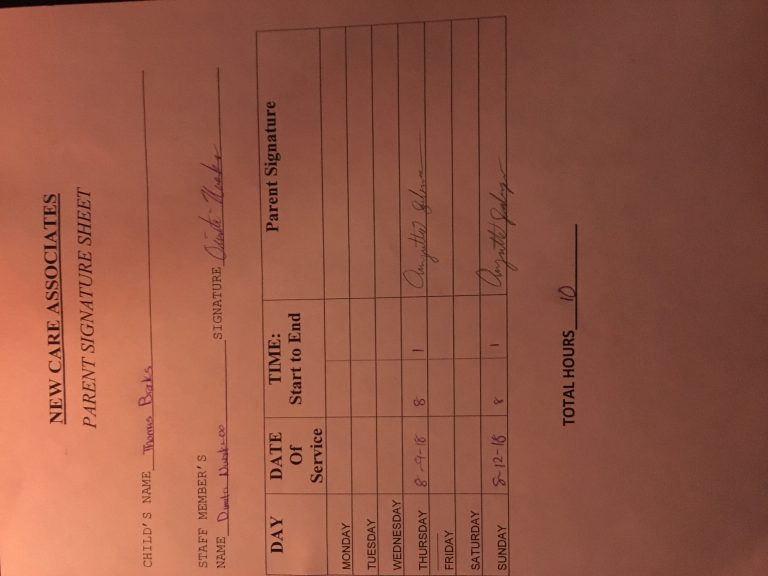 NEW CARE ASSOCIATES
PARENT SIGNATURE SHEET
CHILD'S NAME Thomas Banks
STAFF MEMBER'S
NAME SIGNATURE
DAY DATE Of Service TIME: Start to End Parent Signature
MONDAY
TUESDAY
WEDNESDAY
THURSDAY 8-9-18 8 1
FRIDAY
SATURDAY
SUNDAY 8-12-18 8 1
TOTAL HOURS 10